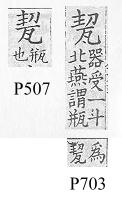 㼤
瓶也
P507
㼤
器受一斗
北燕謂瓶
為㼤
P703